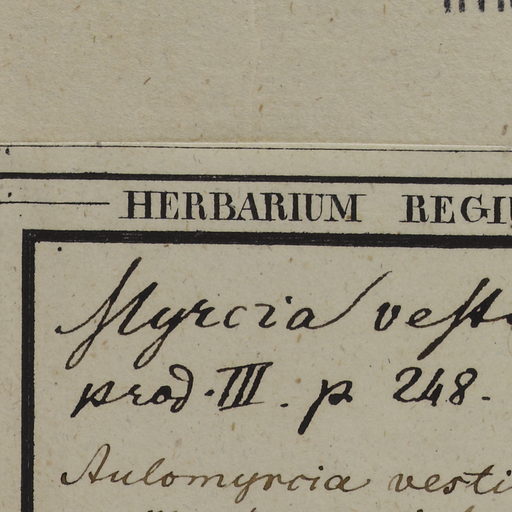 HERBARIUM REGI
Myrcia vest
prod. III. p 248.
Aulomyrcia vesti